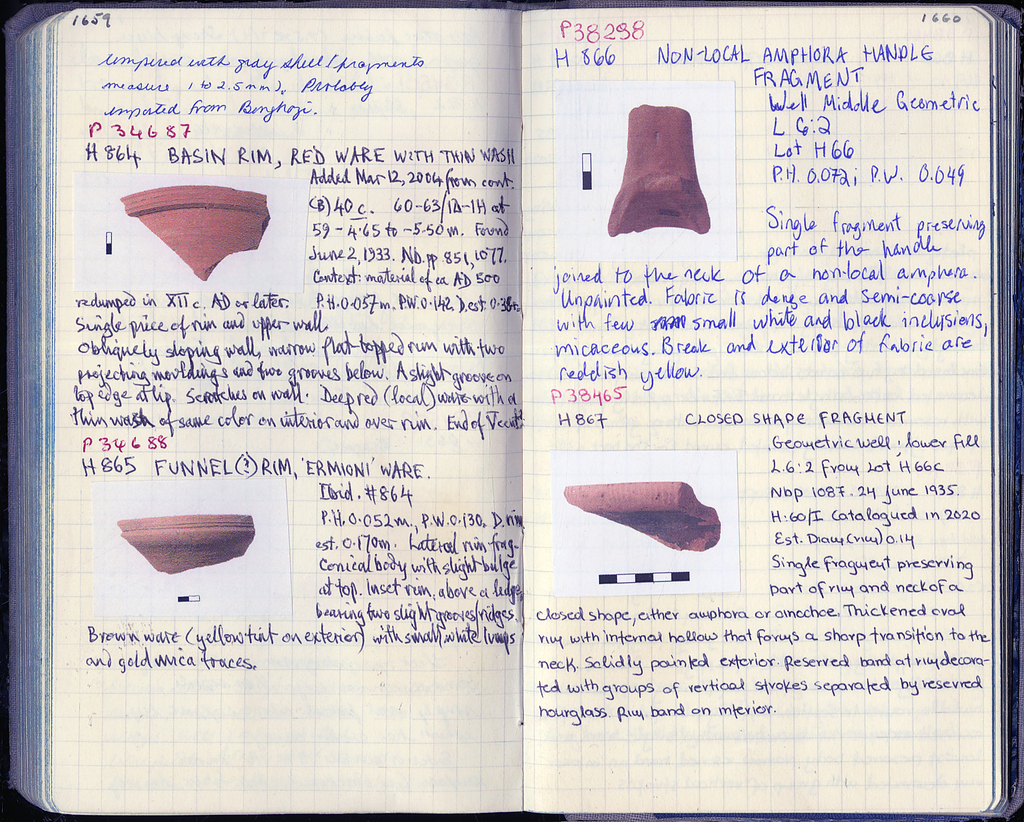 1659
tempered with gray shell/fragments
measure 1 to 2.5mm). Probably
imported from Benghazi.
P 34687
H 864 BASIN RIM, RED WARE WITH THIN WASH
Added Mar 12, 2004 from cont.
(B) 40 c. 60-63/ID-1H at
59 - 4.65 to -5.50 m. Found
June 2, 1933. Nb. pp 851, 1077.
Context: material of ca AD 500
redumped in XII c. AD or later. P.H. 0.057m. P.W. 0.142. D. est. 0.38
Single piece of rim and upper wall.
Obliquely sloping wall, narrow flat-topped rim with two
projecting mouldings and two grooves below. A slight groove on
top edge at lip. Scratches on wall. Deep red (local) ware with a
thin wash of same color on interior and over rim. End of V cent.
P 34688
H 865 FUNNEL(?) RIM, 'ERMIONI' WARE.
Ibid. #864
P.H. 0.052m., P.W. 0.130. D. rim
est. 0.170m. Lateral rim frag-
Conical body with slight bulge
at top. Inset rim, above a ledge
bearing two slight grooves/ridges.
Brown ware (yellow tint on exterior) with small, white lumps
and gold mica traces.
1660
P38298
H 866 NON-LOCAL AMPHORA HANDLE
FRAGMENT
Well Middle Geometric
L 6:2
Lot H66
P.H. 0.072; P.W. 0.049
Single fragment preserving
part of the handle
joined to the neck of a non-local amphora.
Unpainted. Fabric is dense and semi-coarse
with few small white and black inclusions,
micaceous. Break and exterior of fabric are
reddish yellow.
P 38465
H 867 CLOSED SHAPE FRAGMENT
Geometric well; lower fill
L.6:2 From Lot H66c
Nbp 1087. 24 June 1935.
H:60/I Catalogued in 2020
Est. Diam (rim) 0.14
Single fragment preserving
part of rim and neck of a
closed shape, either amphora or oinochoe. Thickened oval
rim with internal hollow that forms a sharp transition to the
neck. Solidly painted exterior. Reserved band at rim decora-
ted with groups of vertical strokes separated by reserved
hourglass. Rim band on interior.